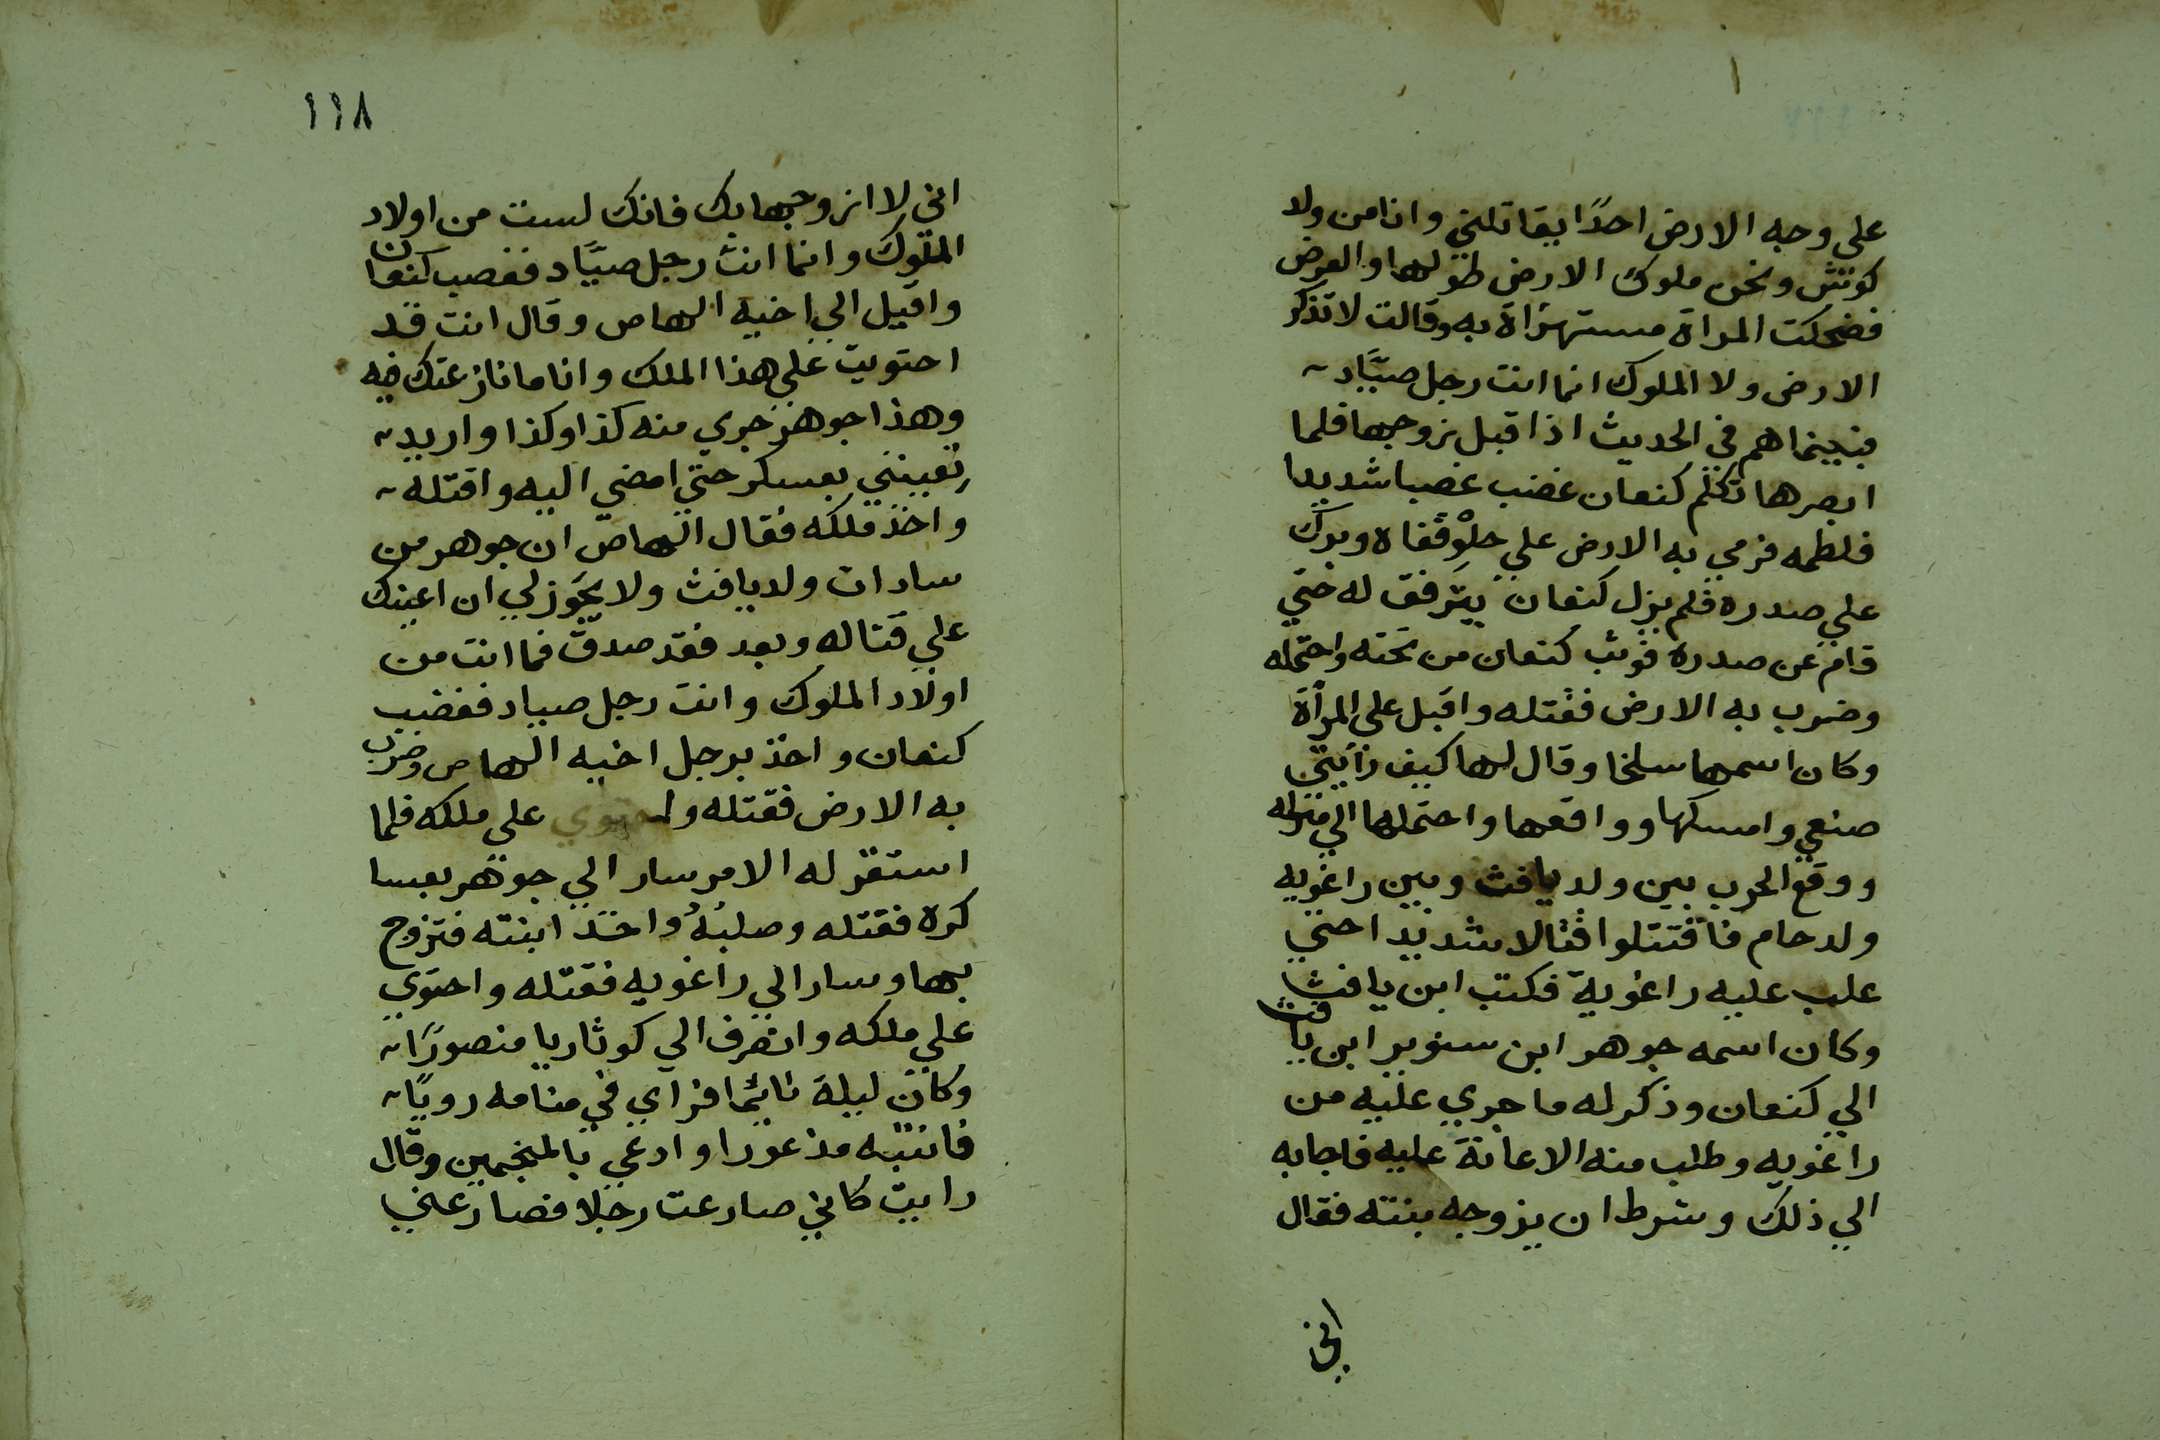 على وجه الارض احدًا يقاتلني وانا من ولد
كوش ونحن ملوك الارض طولها والعرض
فضحكت المراة مستهزاة به وقالت لا تذكر
الارض ولا الملوك انما انت رجل صيَّاد
فبينما هم في الحديث اذ اقبل زوجها فلما
ابصرها تكلم كنعان غضب غضبا شديدا
فلطمه فرمي به الارض علي حلْوقفاه وبرك
علي صدره فلم يزل كنعان يترفق له حتي
قام عن صدره فوثب كنعان من تحته واحتمله
وضرب به الارض فقتله واقبل على المرأة
وكان اسمها سلخا وقال لها كيف رايتي
صنعي وامسكها وواقعها واحتملها الي منزله
ووقع الحرب بين ولد يافث وبين راغويه
ولد حام فاقتتلوا قتالا شديدا حتي
علب عليه راغوية فكتب ابن يافث
وكان اسمه جوهر ابن سنوبر ابن يافث
الي كنعان وذكر له ما جري عليه من
راغويه وطلب منه الاعانة عليه فاجابه
الي ذلك وشرط ان يزوجه بنته فقال
اني
١١٨
اني لا ازوجها بك فانك لست من اولاد
الملوك وانما انت رجل صيَّاد فغصب كنعان
واقبل الي اخيه الهاص وقال انت قد
احتويت علي هذا الملك وانا ما نازعتك فيه
وهذا جوهر جري منه كذا وكذا واريد
تعينني بعسكر حتي امضي اليه واقتله
واخذ ملكه فقال الهاص ان جوهر من
سادات ولد يافث ولا يجوز لي ان اعينك
علي قتاله وبعد فقد صدق فما انت من
اولاد الملوك وانت رجل صياد فغضب
كنعان واخذ برجل اخيه الهاص وضرب
به الارض فقتله واحتوي على ملكه فلما
استقر له الامر سار الي جوهر بعسا
كره فقتله وصلبُهُ واخذ ابنته فتزوج
بها وسار الي راغويه فقتله واحتوي
علي ملكه وانصرف الي كوثاريا منصورًا
وكان ليلة نائما فراي في منامه رويًا
فانتبه مذعورا وادعي بالمنجمين وقال
رايت كاني صارعت رجلا فصارعني